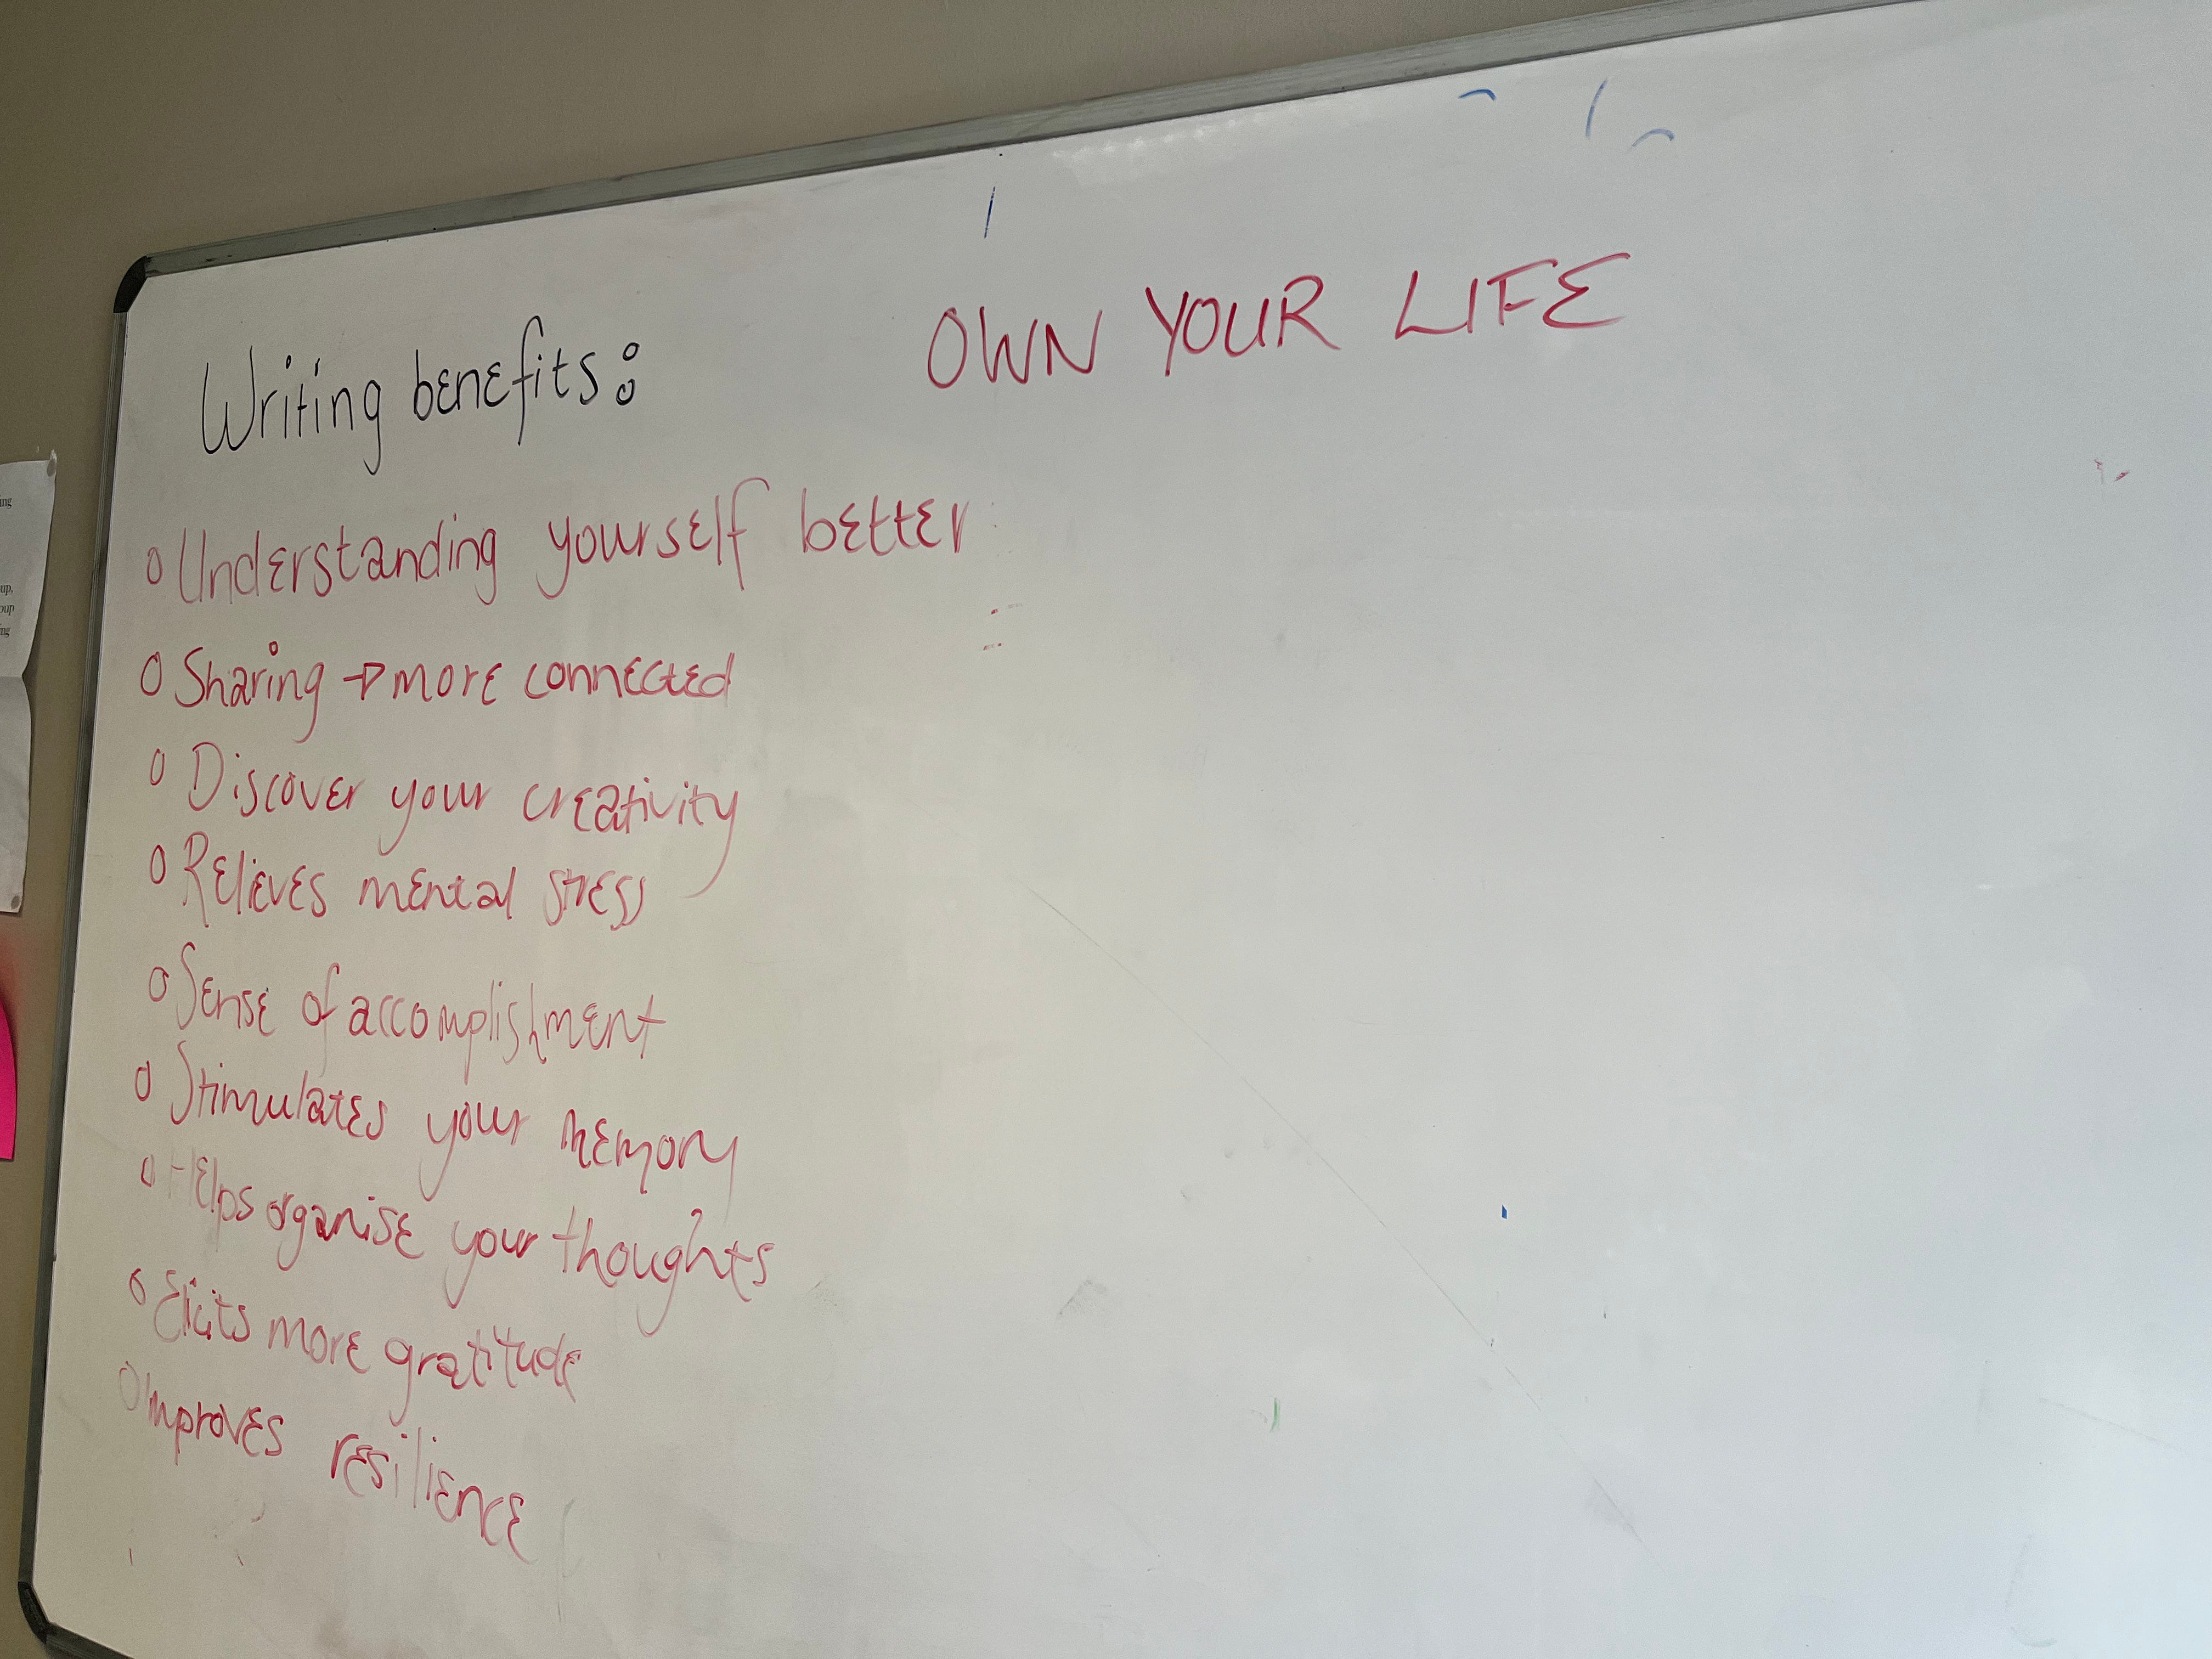 OWN YOUR LIFE
Writing benefits:
o Understanding yourself better
o Sharing → more connected
o Discover your creativity
o Relieves mental stress
o Sense of accomplishment
o Stimulates your memory
o Helps organise your thoughts
o Elicits more gratitude
o Improves resilience
ing
up,
oup
ng